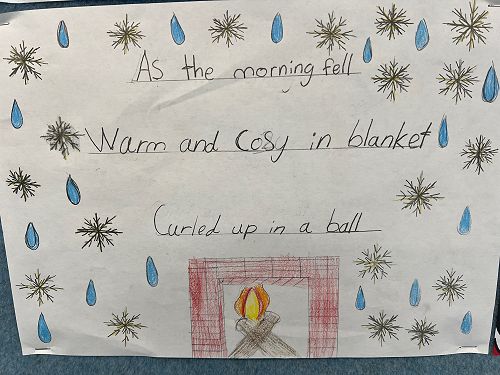 As the morning fell
Warm and cosy in blanket
Curled up in a ball